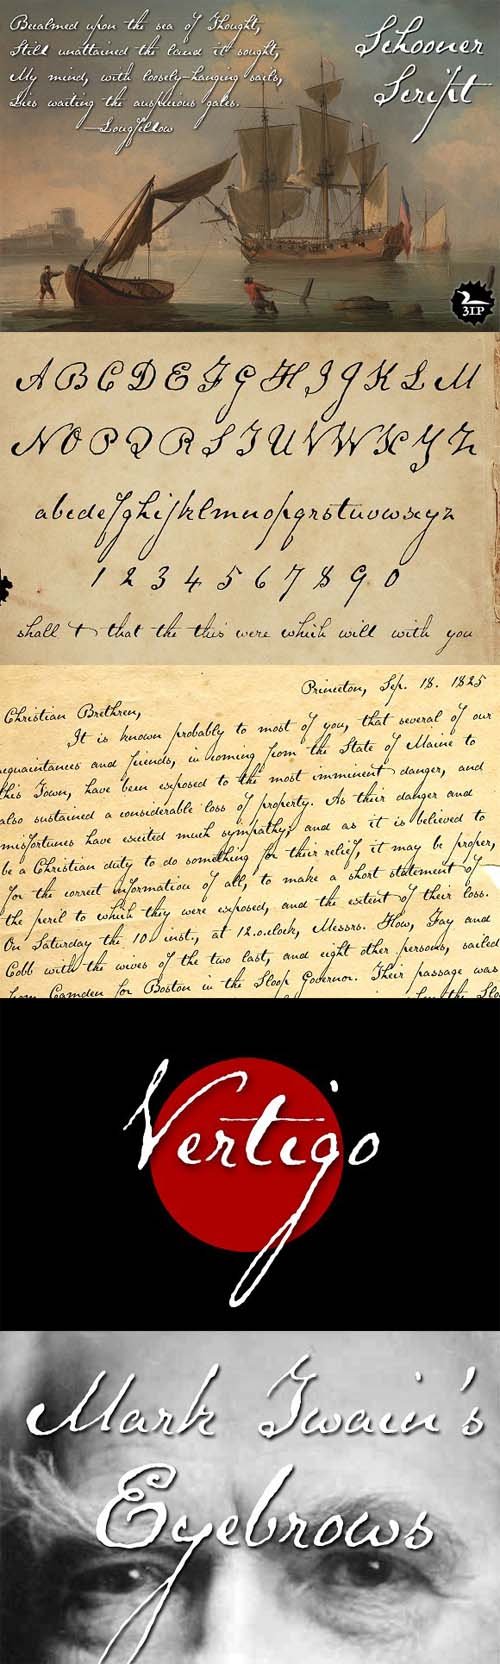 Becalmed upon the sea of Thought,
Still unattained the land it sought,
My mind, with loosely-hanging sails,
Lies waiting the auspicious gales.
—Longfellow
Schooner
Script
3IP
A B C D E F G H I J K L M
N O P Q R S T U V W X Y Z
a b c d e f g h i j k l m n o p q r s t u v w x y z
1 2 3 4 5 6 7 8 9 0
shall & that the this were which will with you
Princeton, Sep. 18. 1825
Christian Brethren,
It is known probably to most of you, that several of our
acquaintances and friends, in coming from the State of Maine to
this Town, have been exposed to the most imminent danger, and
also sustained a considerable loss of property. As their danger and
misfortunes have excited much sympathy; and as it is believed to
be a Christian duty to do something for their relief, it may be proper,
for the correct information of all, to make a short statement of
the peril to which they were exposed, and the extent of their loss.
On Saturday the 10 inst., at 12.o,clock, Messrs. How, Fay and
Cobb with the wives of the two last, and eight other persons, sailed
from Camden for Boston in the Sloop Governor. Their passage was
Vertigo
Mark Twain's
Eyebrows